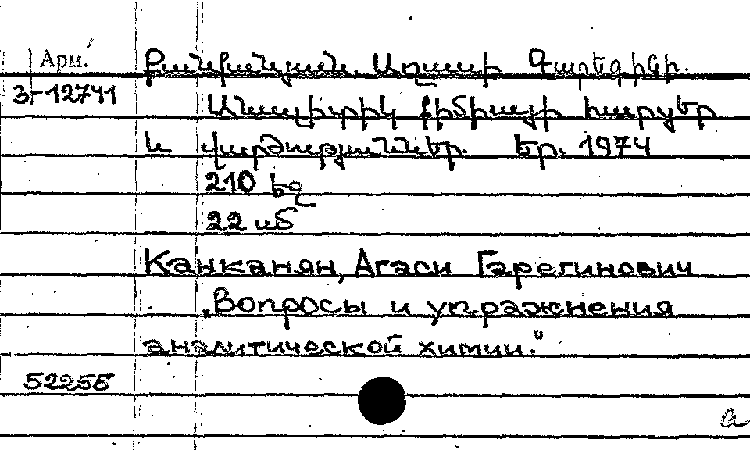 Арм.
Քանքանյան, Աղասի Գարեգինի.
3-12741
Անալիտիկ քիմիայի հարցեր
և վարժություններ. Եր. 1974
210 էջ
22 սմ
Канканян, Агаси Гарегинович
„Вопросы и упражнения
аналитической химии."
52255
а